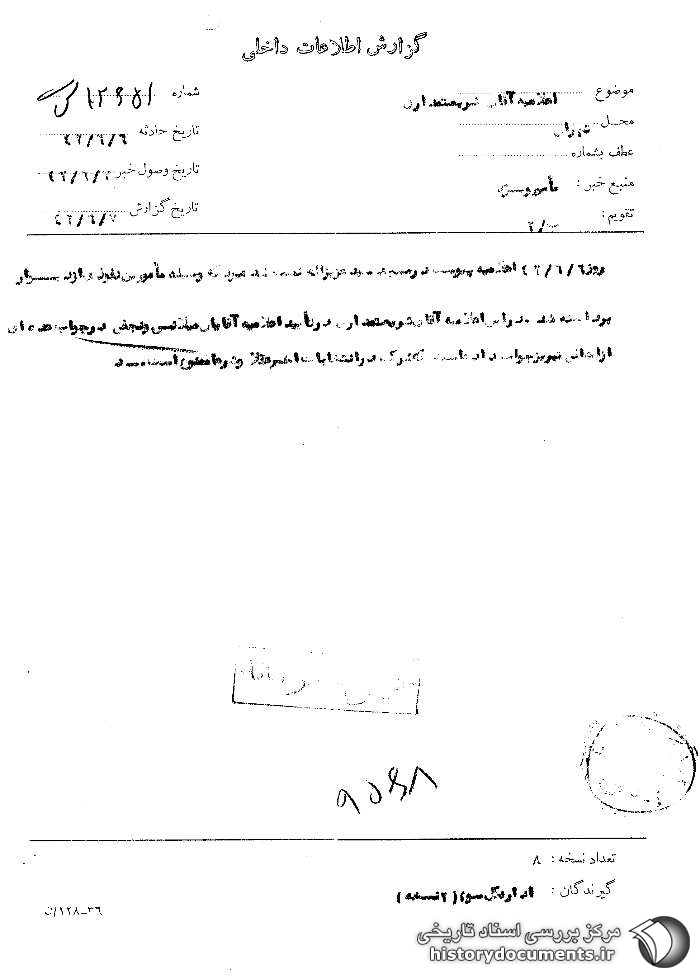 گزارش اطلاعات داخلی
موضوع اعلامیه آقای شریعتمداری
محل تهران
عطف بشماره
منبع خبر: مأمور ویژه
تقویم:
شماره
تاریخ حادثه ۴۲/۶/۶
تاریخ وصول خبر
تاریخ گزارش ۴۲/۶/۷
روز ۴۲/۶/۶ اعلامیه پیوست در مسجد سید عزیزاله نصب شده بود که وسیله مأمورین نفوذی از دیوار
برداشته شد. در این اعلامیه آقای شریعتمداری در تأیید اعلامیه آقایان میلانی و نجفی در جواب عده‌ای
از اهالی تبریز جواب داده است که شرکت در انتخابات اخیر عقلا و شرعا ممنوع است
تعداد نسخه: ۸
گیرندگان: اداره کل سوم (۲ نسخه)
۳۶-۱۲۸/ث
مرکز بررسی اسناد تاریخی
historydocuments.ir